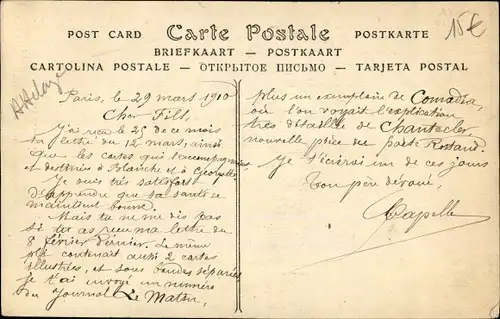 POST CARD Carte Postale POSTKARTE
BRIEFKAART — POSTKAART
CARTOLINA POSTALE — ОТКРЫТОЕ ПИСЬМО — TARJETA POSTAL
15€
Paris, le 29 mars 1910
Cher Fils,
J'ai reçu le 25 de ce mois
ta lettre du 12 mars, ainsi
que les cartes qui l'accompagnaient
et destinées à Blanche et à Georgette
Je suis très satisfait
d'apprendre que ta santé se
maintient bonne.
Mais tu ne me dis pas
si tu as reçu ma lettre du
8 février dernier. Le même
pli contenait aussi 2 cartes
illustrées, et sous bandes séparées
je t'ai envoyé un numéro
du Journal Le Matin,
plus un exemplaire de Comœdia,
où l'on voyait l'explication
très détaillée de Chantecler,
nouvelle pièce du poète Rostand.
Je t'écrirai un de ces jours
Ton père dévoué,
Capelle